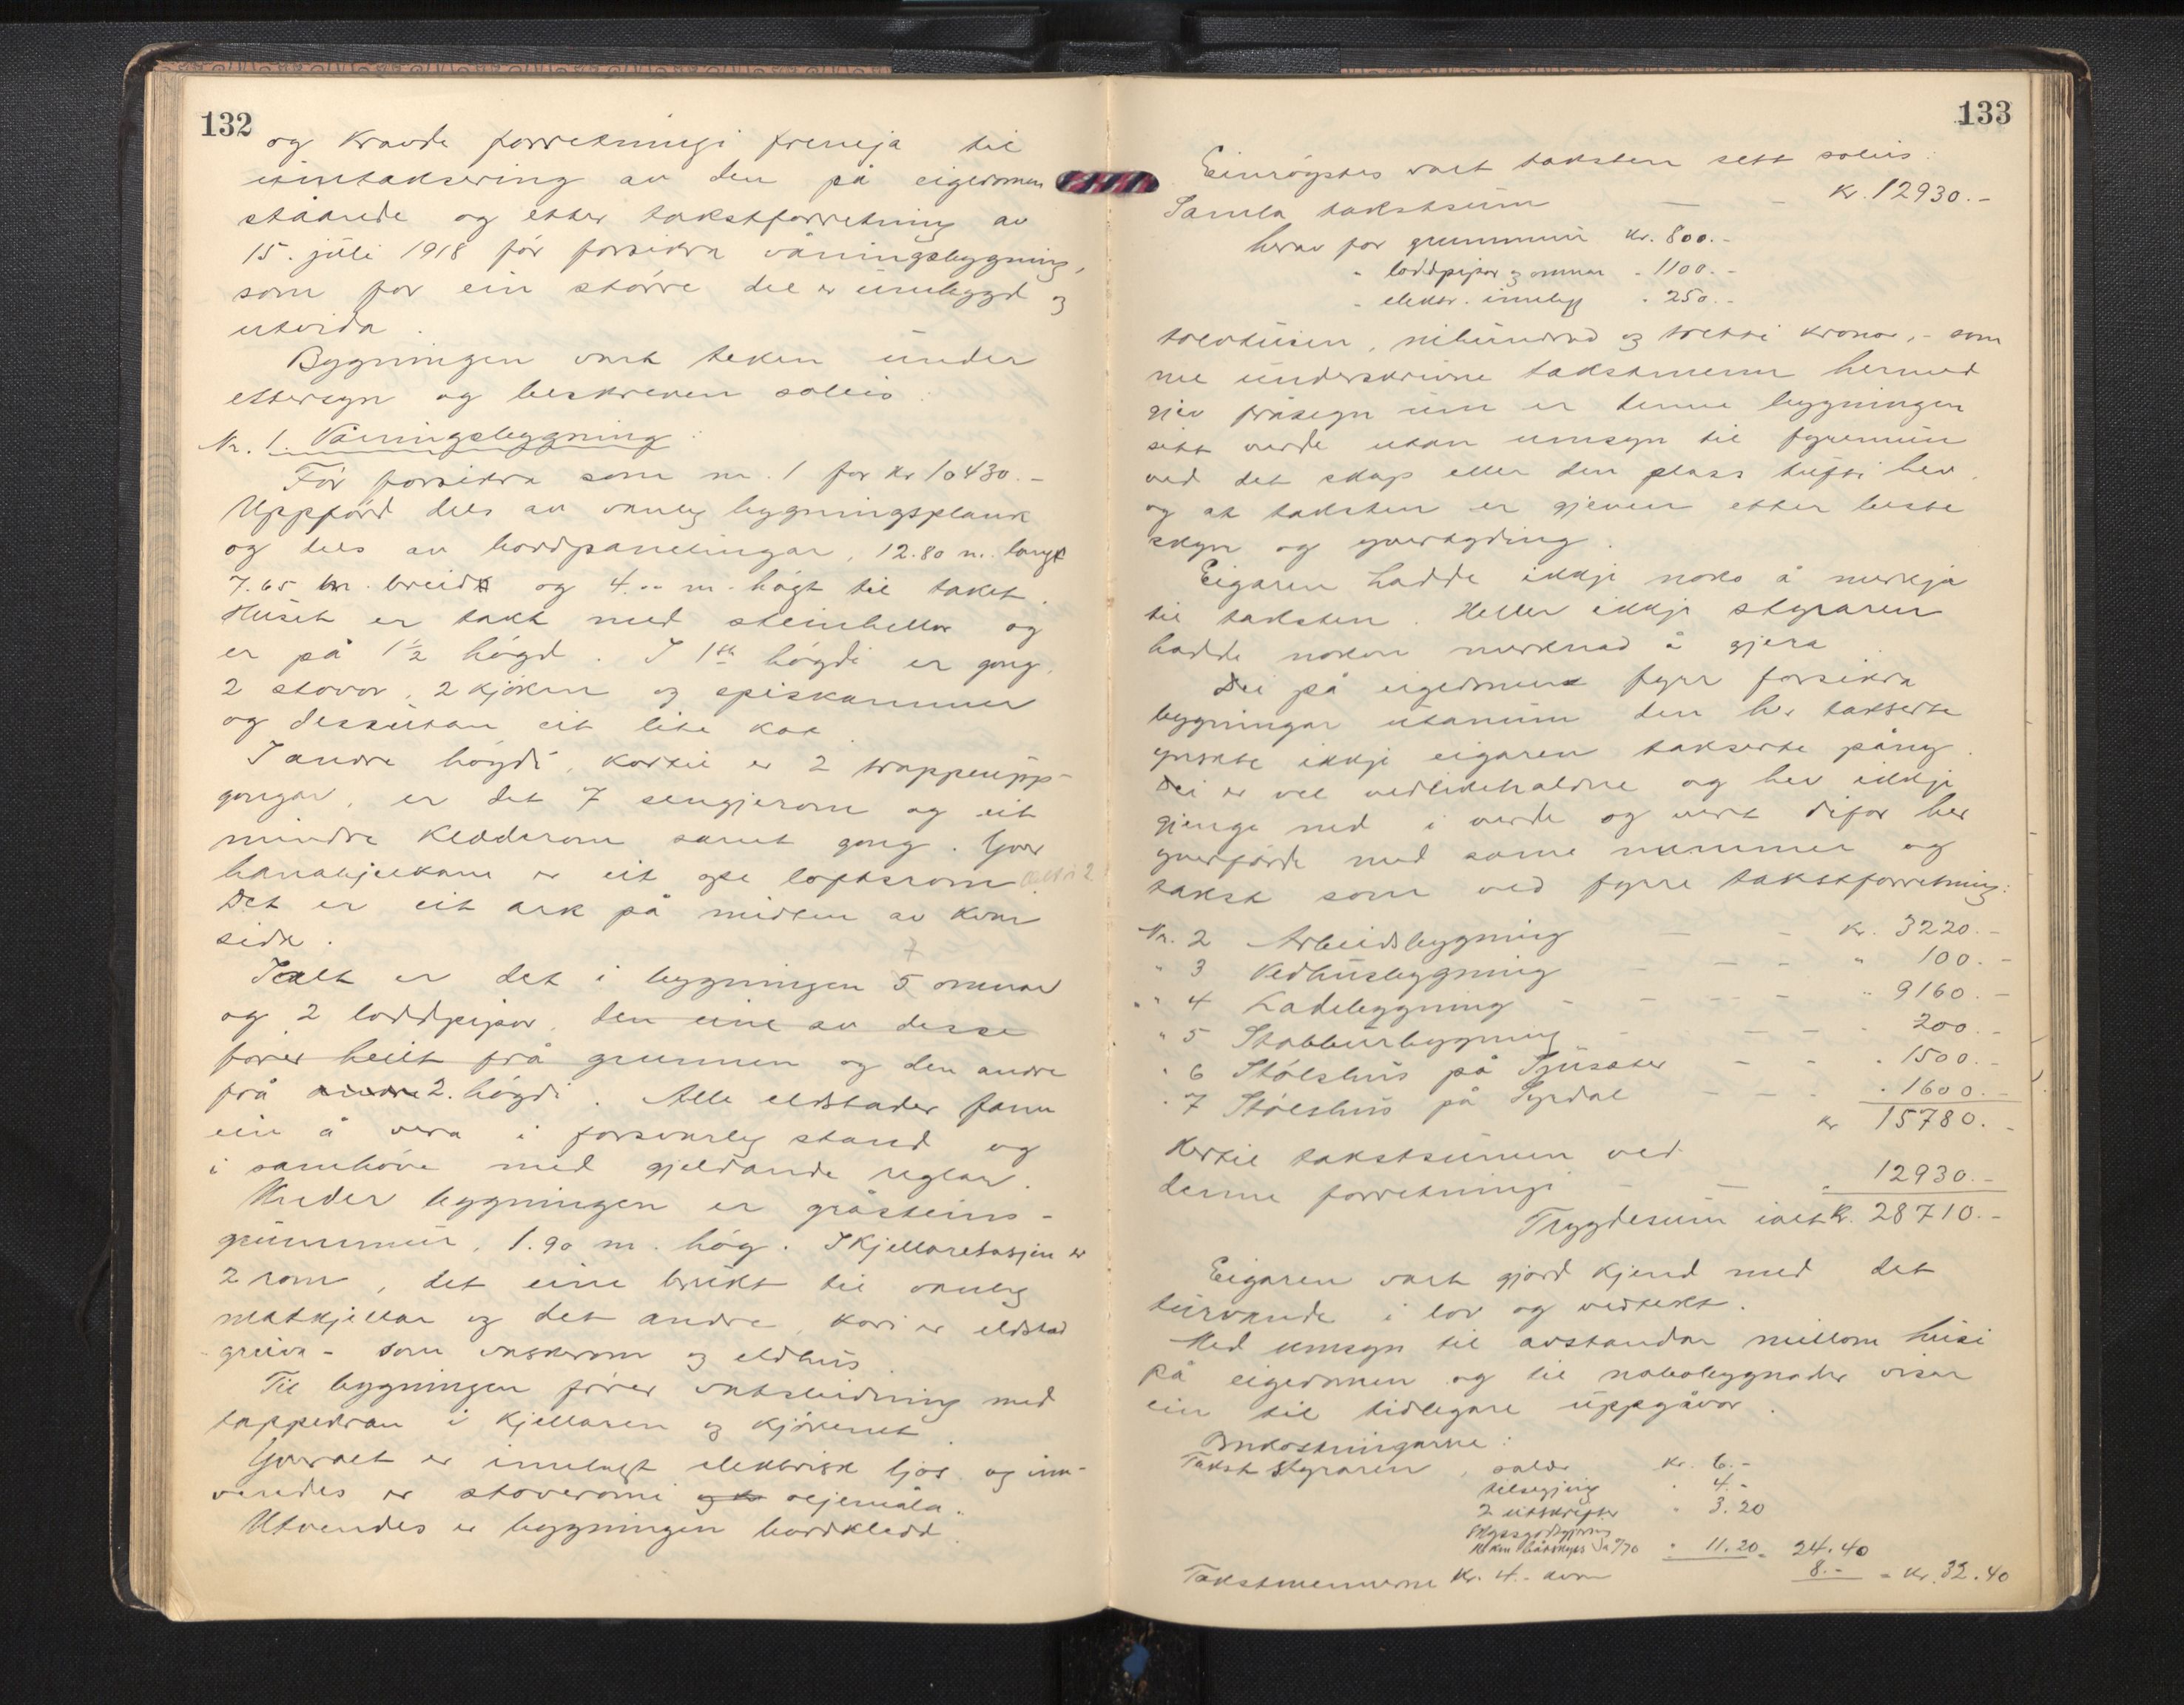 132
og kravde forretningi fremja til
umtaksering av den på eigedomen
ståande og etter takstforretning av
15. juli 1918 før forsikra våningsbygning,
som for ein større del er umbygd og
utvida.
Bygningen vart teken under
ettersyn og beskreven soleis:
Nr. 1. Våningsbygning:
Før forsikra som nr. 1 for kr 10430.-
Uppførd dels av vanleg bygningsplank
og dels av bordpanelingar, 12.80 m. lang
7.65 m. breid og 4.00 m. høgt til taket.
Huset er takt med steinhellor og
er på 1½ høgd. I 1ste høgdi er gong,
2 stovor, 2 kjøken og spiskammer
og dessutan eit lite kot.
I andre høgdi, kortil er 2 trappeupp-
gongar, er det 7 sengjerom og eit
mindre klæderom samt gong. Yver
hanabjelkane er eit ope loftsrom.
Det er eit ark på midten av kvar
side.
Ialt er det i bygningen 5 7 omnar
og 2 loddpipor, den eine av desse
fører heilt frå grunnen og den andre
frå andre 2. høgdi. Alle eldstader fann
ein å vera i forsvarleg stand og
i samhøve med gjeldande reglar.
Under bygningen er gråsteins-
grunnmur, 1.90 m. høg. I kjellaretasjen er
2 rom, det eine brukt til vanleg
matkjellar og det andre, kori er eldstad
- gruva - som vaskerom og eldhus.
Til bygningen fører vatsleidning med
tappekran i kjellaren og kjøkenet.
Yveralt er innelagt elektrisk ljos og inn-
vendes er stoveromi og ko oljemåla.
Utvendes er bygningen bordkledd.
133
Einrøystes vart taksten sett soleis:
Samla takstsum - - Kr. 12930.-
herav for grunnmur kr. 800.-
" loddpipor og omnar " 1100.-
" elektr. innlegg " 250.-
tolvtusen, nihundrad og tretti kronor, - som
me underskrivne takstmenn hermed
gjev fråsegn um er denne bygningen
sitt verde utan umsyn til fyremun
ved det skap eller den plass tufti hev,
og at taksten er gjeven etter beste
skyn og yvertyding.
Eigaren hadde ikkje noko å merkja
til taksten. Heller ikkje styraren
hadde nokon merknad å gjera.
Dei på eigedomen fyrr forsikra
bygningar utanum den her takserte
ynskte ikkje eigaren takserte påny.
Dei er vel vedlikehaldne og hev ikkje
gjenge ned i verde og vert difor her
yverførde med same nummer og
takst som ved fyrre takstforretning:
Nr. 2 Arbeidsbygning - - Kr. 3220.-
" 3 Vedhusbygning - - - " 100.-
" 4 Ladebygning - - - - " 9160.-
" 5 Stabbursbygning - - - - " 200.-
" 6 Stølshus på - - " 1500.-
" 7 Stølshus på - - - " 1600.-
kr 15780.-
Hertil takstsumen ved
denne forretningi - - " 12930.-
Trygdesum ialt kr. 28710.-
Eigaren vart gjord kjend med det
turvande i lov og vedtekt.
Med umsyn til avstandar millom husi
på eigedomen og til nabobygnader viser
ein til tidlegare uppgåvor.
Omkostningarne:
Takst styraren, salær kr. 6.-
tilsegjing " 4.-
2 utskrifter " 3.20
Skyssgodtgjering
km båtskyss à 0/70 " 11.20 = 24.40
Takstmennerne kr. 4.- kvar 8.- = kr. 32.40